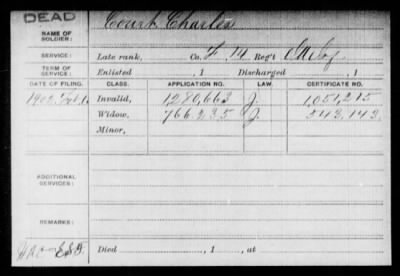 DEAD
NAME OF SOLDIER: Court Charles
SERVICE: Late rank, Co. F, 14 Reg't
TERM OF SERVICE: Enlisted , 1 Discharged , 1
DATE OF FILING. CLASS. APPLICATION NO. LAW. CERTIFICATE NO.
1902 Invalid, 1280,663 J. 1,051,215
Widow, 766.235 J. 543,143
Minor,
ADDITIONAL SERVICES:
REMARKS:
Died , 1 , at